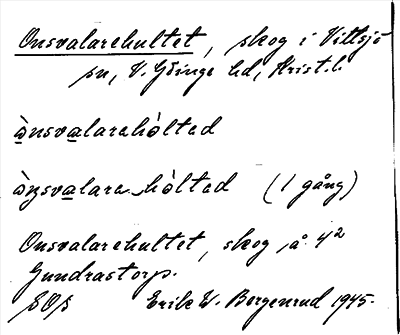 Onsvalarehultet, skog i Vittsjö
sn, V. Göinge hd, Krist. l.
ònsvalarahòltad
òṇsvalara-hòltad (1 gång)
Onsvalarehultet, skog, å. 4²
Gundrastorp.
Erik W. Borgenrud 1945.